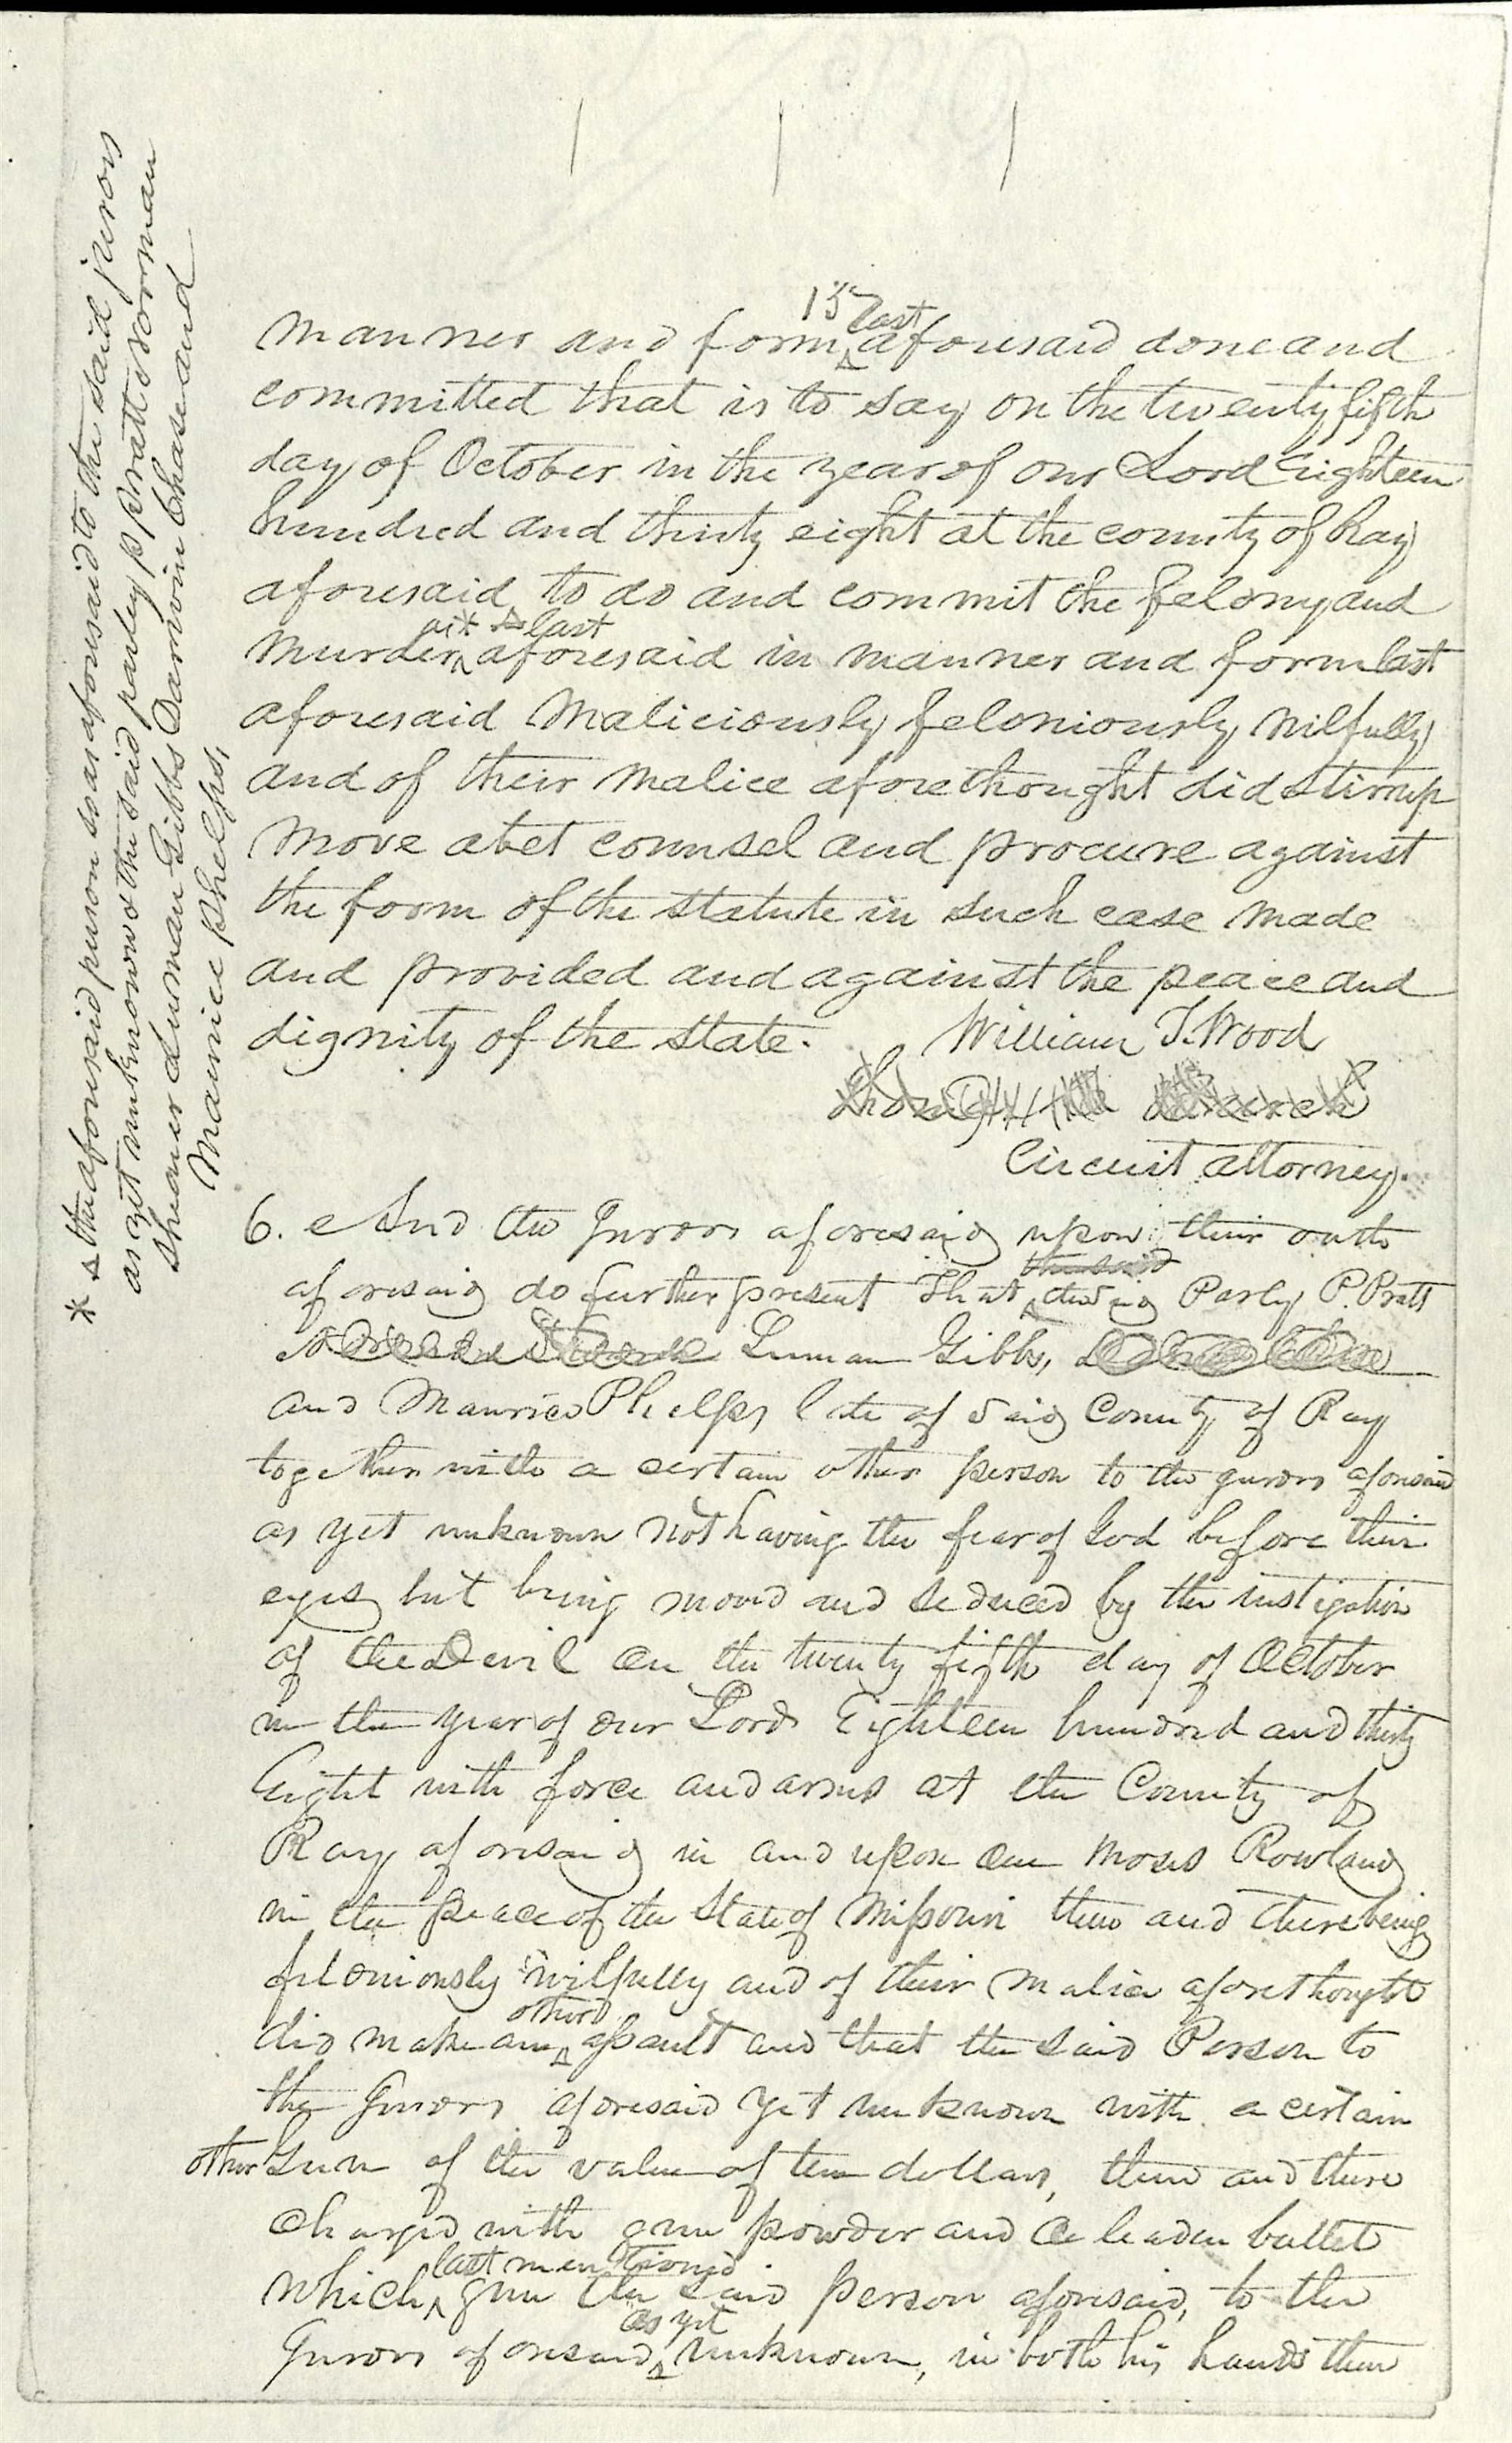 15
last
manner and form aforesaid done and
committed that is to say on the twenty fifth
day of October in the year of our Lord Eighteen
hundred and thirty eight at the county of Ray
aforesaid to do and commit the felony and
last
murder aforesaid in manner and form last
aforesaid Maliciously feloniously wilfully
and of their malice aforethought did stir up
move abet counsel and procure against
the form of the statute in such case made
and provided and against the peace and
dignity of the state. William T. Wood
Circuit attorney.
* the aforesaid person so as aforesaid to the said jurors
as yet unknown & the said parley p pratt & norman
shearer Luman Gibbs Darwin Chase and
Maurice phelps,
6. And the Jurors aforesaid upon their oath
the said
aforesaid do further present That Parly P. Pratt
Luman Gibbs,
and Maurice Phelps late of said County of Ray
together with a certain other person to the jurors aforesaid
as yet unknown not having the fear of God before their
eyes but being moved and seduced by the instigation
of the Devil on the twenty fifth day of October
in the year of our Lord Eighteen hundred and thirty
Eight with force and arms at the County of
Ray aforesaid in and upon one Moses Rowland
in the peace of the State of Missouri then and there being
feloniously wilfully and of their malice aforethought
other
did make an assault and that the said Person to
the Jurors aforesaid yet unknown with a certain
other Gun of the value of ten dollars, then and there
Charged with gun powder and a leaden bullet
last mentioned
which gun the said person aforesaid, to the
as yet
Jurors aforesaid unknown, in both his hands then